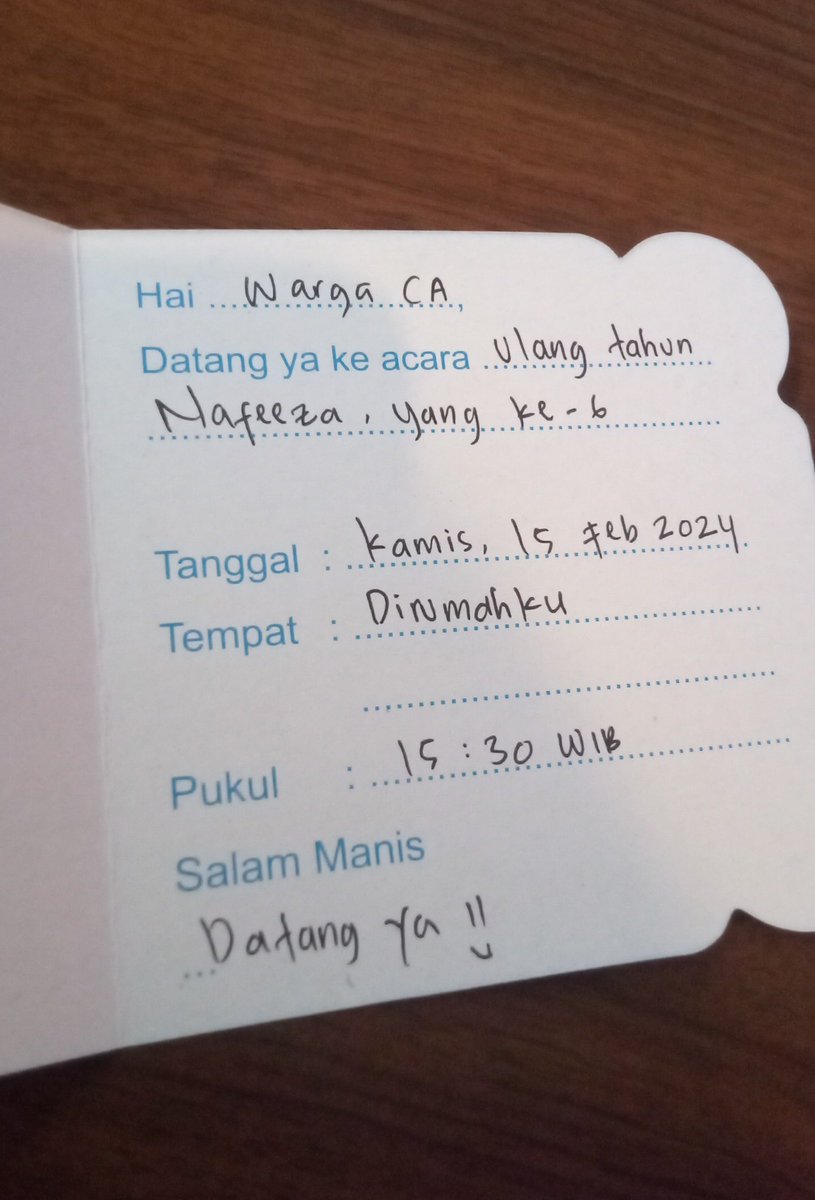 Hai ... Warga CA ,
Datang ya ke acara ulang tahun
Nafeeza, yang ke-6
Tanggal : Kamis, 15 Feb 2024
Tempat : Dirumahku
Pukul : 15:30 WIB
Salam Manis
Datang ya !!